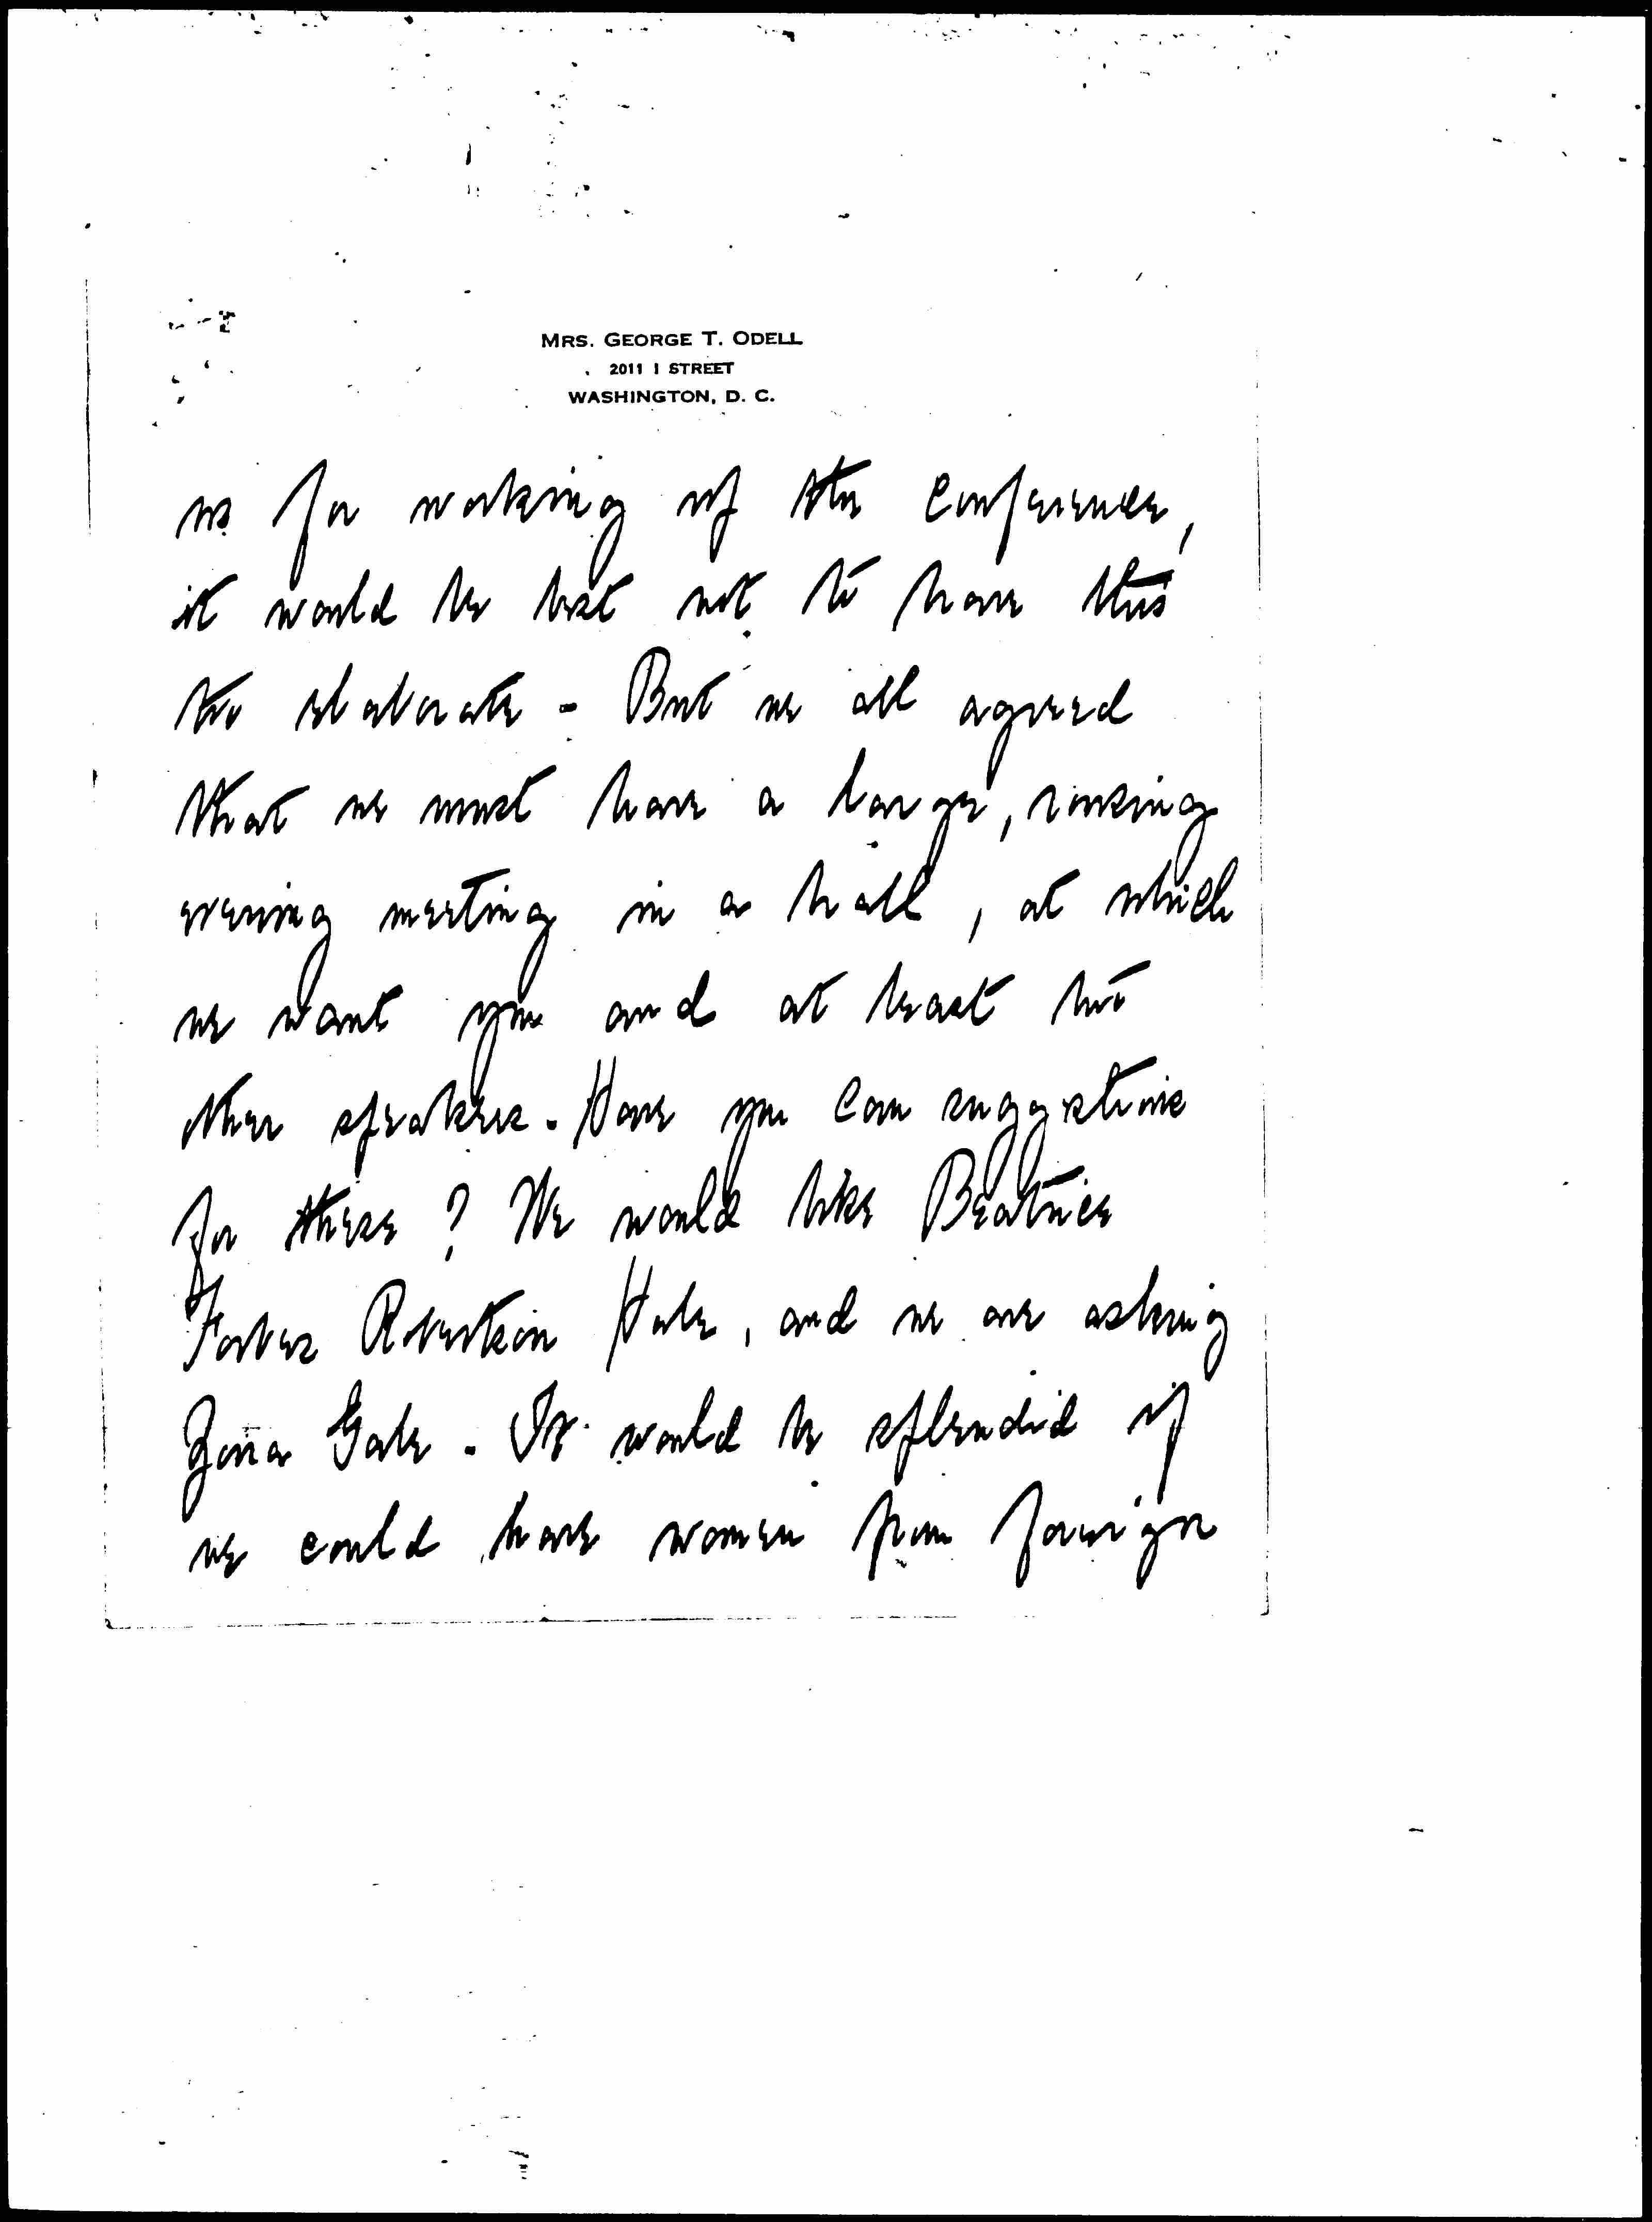 MRS. GEORGE T. ODELL
2011 I STREET
WASHINGTON, D. C.
as for working of the conference,
it would be best not to have this
too elaborate - But we all agreed
that we must have a large, rousing
evening meeting in a hall, at which
we want you and at least two
other speakers. Have you can suggestions
for these? We would like Beatrice
Forbes Robertson Hale, and we are asking
Zona Gale. It would be splendid if
we could have women from foreign